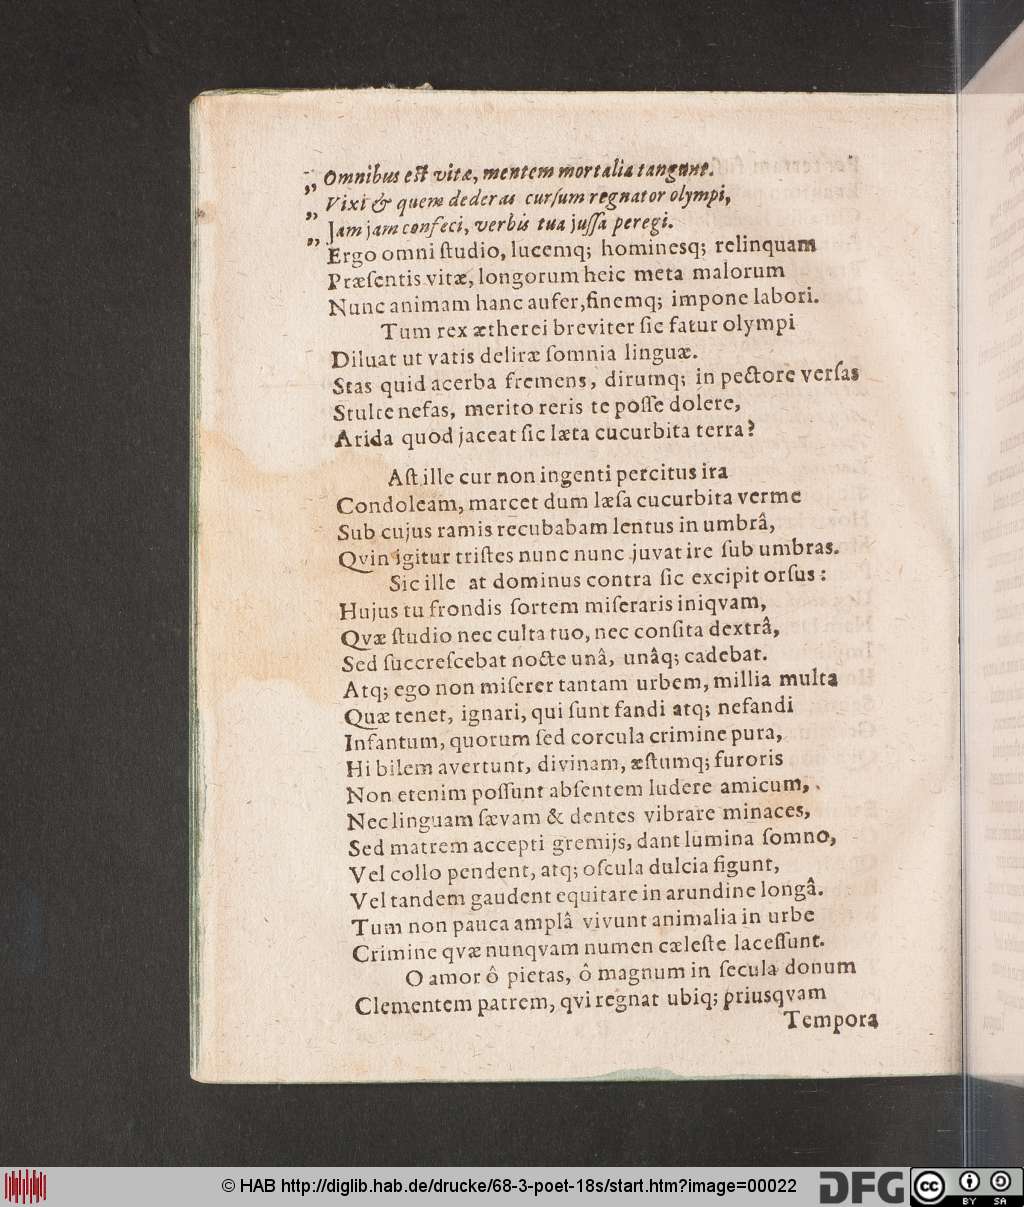 „ Omnibus est vitæ, mentem mortalia tangunt.
„ Vixi & quem dederas cursum regnator olympi,
„ Jam jam confeci, verbis tua jussa peregi.
Ergo omni ſtudio, lucemq; hominesq; relinquam
Præſentis vitæ, longorum heic meta malorum
Nunc animam hanc aufer, finemq; impone labori.
Tum rex ætherei breviter ſic fatur olympi
Diluat ut vatis deliræ ſomnia linguæ.
Stas quid acerba fremens, dirumq; in pectore verſas
Stulte nefas, merito reris te poſſe dolere,
Arida quod jaceat ſic læta cucurbita terra?
Aſt ille cur non ingenti percitus ira
Condoleam, marcet dum læſa cucurbita verme
Sub cujus ramis recubabam lentus in umbrâ,
Qvin igitur triſtes nunc nunc juvat ire ſub umbras.
Sic ille at dominus contra ſic excipit orſus:
Hujus tu frondis ſortem miſeraris iniqvam,
Qvæ ſtudio nec culta tuo, nec conſita dextrâ,
Sed ſuccreſcebat nocte unâ, unâq; cadebat.
Atq; ego non miſerer tantam urbem, millia multa
Quæ tenet, ignari, qui ſunt fandi atq; nefandi
Infantum, quorum ſed corcula crimine pura,
Hi bilem avertunt, divinam, æſtumq; furoris
Non etenim poſſunt abſentem ludere amicum,
Nec linguam ſævam & dentes vibrare minaces,
Sed matrem accepti gremijs, dant lumina ſomno,
Vel collo pendent, atq; oſcula dulcia figunt,
Vel tandem gaudent equitare in arundine longâ.
Tum non pauca amplâ vivunt animalia in urbe
Crimine qvæ nunqvam numen cæleſte laceſſunt.
O amor ô pietas, ô magnum in ſecula donum
Clementem patrem, qvi regnat ubiq; priusqvam
Tempora
© HAB http://diglib.hab.de/drucke/68-3-poet-18s/start.htm?image=00022
DFG
cc BY SA